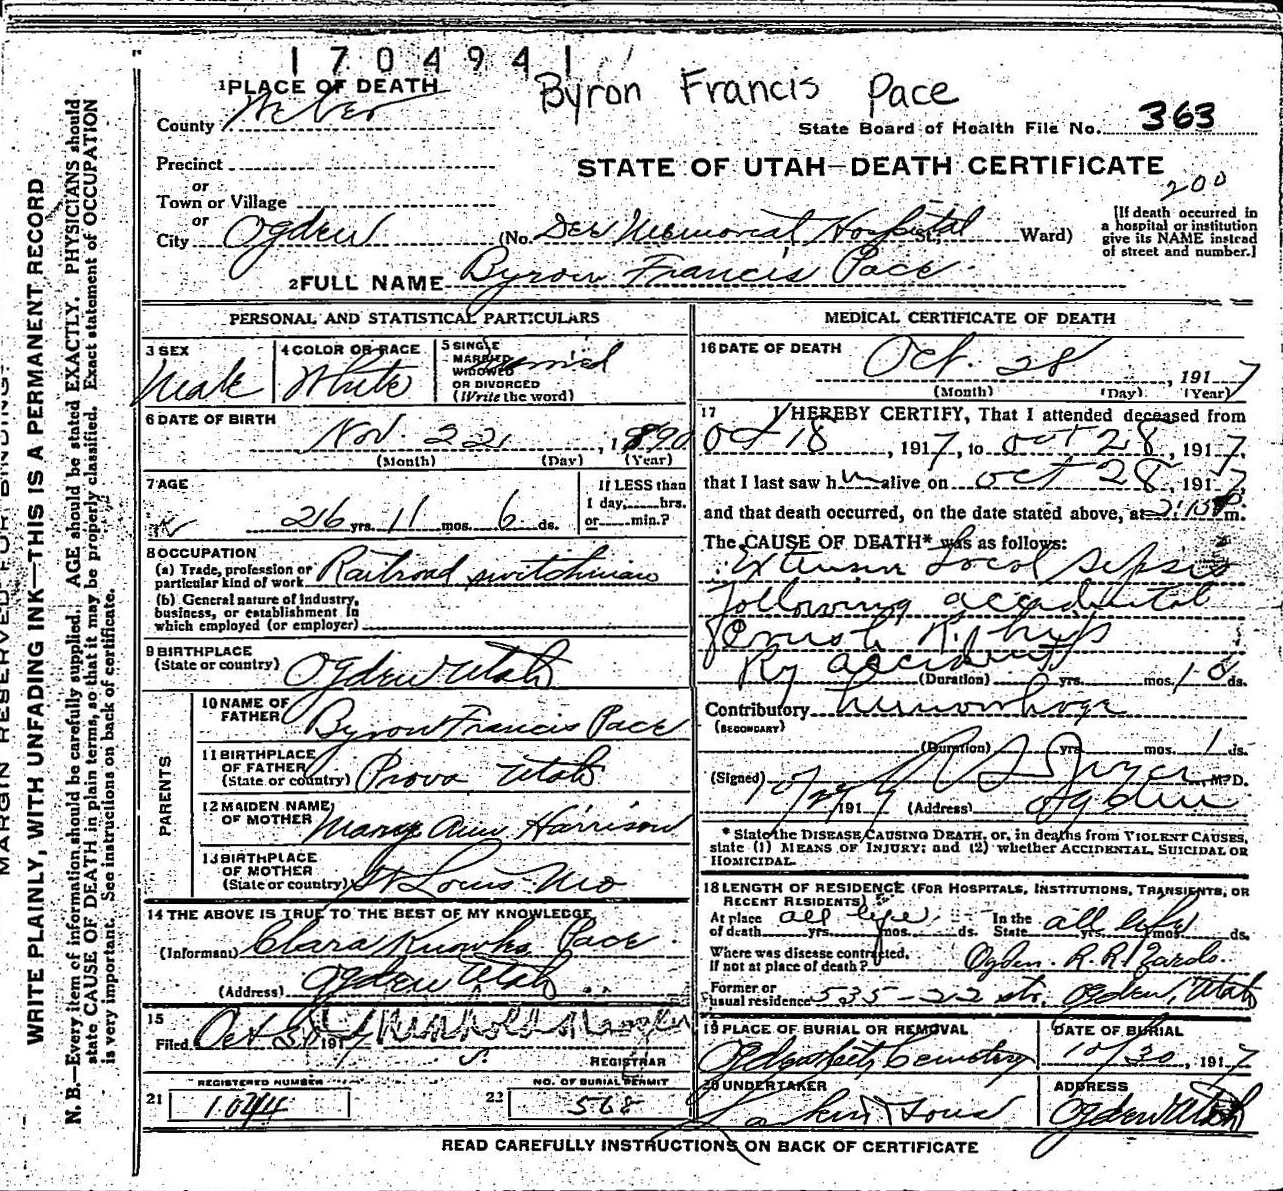 1704941
Byron Francis Pace
1 PLACE OF DEATH
County Weber
State Board of Health File No. 363
Precinct
STATE OF UTAH—DEATH CERTIFICATE
or
200
Town or Village
or
City Ogden (No. Dee Memorial Hospital St; Ward)
[If death occurred in
a hospital or institution
give its NAME instead
of street and number.]
2 FULL NAME Byron Francis Pace
PERSONAL AND STATISTICAL PARTICULARS
3 SEX
Male
4 COLOR OR RACE
White
5 SINGLE
MARRIED
WIDOWED
OR DIVORCED
(Write the word)
Married
6 DATE OF BIRTH
Nov. 22, 1890
(Month) (Day) (Year)
7 AGE
26 yrs. 11 mos. 6 ds.
If LESS than
1 day, hrs.
or min.?
8 OCCUPATION
(a) Trade, profession or
particular kind of work Railroad switchman
(b) General nature of industry,
business, or establishment in
which employed (or employer)
9 BIRTHPLACE
(State or country) Ogden Utah
PARENTS
10 NAME OF
FATHER Byron Francis Pace
11 BIRTHPLACE
OF FATHER
(State or country) Provo Utah
12 MAIDEN NAME
OF MOTHER Mary Ann Harrison
13 BIRTHPLACE
OF MOTHER
(State or country) St Louis Mo
14 THE ABOVE IS TRUE TO THE BEST OF MY KNOWLEDGE
(Informant) Clara Knowles Pace
(Address) Ogden Utah
15
Filed Oct 30 1917
REGISTRAR
REGISTERED NUMBER
21 1044
NO. OF BURIAL PERMIT
22 568
MEDICAL CERTIFICATE OF DEATH
16 DATE OF DEATH
Oct. 28, 1917
(Month) (Day) (Year)
17 I HEREBY CERTIFY, That I attended deceased from
Oct 18, 1917, to Oct 28, 1917,
that I last saw him alive on Oct 28, 1917,
and that death occurred, on the date stated above, at m.
The CAUSE OF DEATH* was as follows:
Extensive Local Sepsis
following accidental
Crush R. hip
Ry accident
(Duration) yrs. mos. 10 ds.
Contributory hemorrhage
(SECONDARY)
(Duration) yrs. mos. 1 ds.
(Signed) M. D.
191 (Address) Ogden
* State the DISEASE CAUSING DEATH, or, in deaths from VIOLENT CAUSES,
state (1) MEANS OF INJURY; and (2) whether ACCIDENTAL, SUICIDAL OR
HOMICIDAL.
18 LENGTH OF RESIDENCE (FOR HOSPITALS, INSTITUTIONS, TRANSIENTS, OR
RECENT RESIDENTS)
At place
of death all life yrs. mos. ds. In the
State all life yrs. mos. ds.
Where was disease contracted,
If not at place of death? Ogden R.R. Yards.
Former or
usual residence 535-22 str. Ogden, Utah
19 PLACE OF BURIAL OR REMOVAL
Ogden City Cemetery
DATE OF BURIAL
10/30, 1917
20 UNDERTAKER
Larkin & Sons
ADDRESS
Ogden Utah
READ CAREFULLY INSTRUCTIONS ON BACK OF CERTIFICATE
MARGIN RESERVED FOR BINDING
WRITE PLAINLY, WITH UNFADING INK—THIS IS A PERMANENT RECORD
N. B.—Every item of information should be carefully supplied. AGE should be stated EXACTLY. PHYSICIANS should
state CAUSE OF DEATH in plain terms, so that it may be properly classified. Exact statement of OCCUPATION
is very important. See instructions on back of certificate.